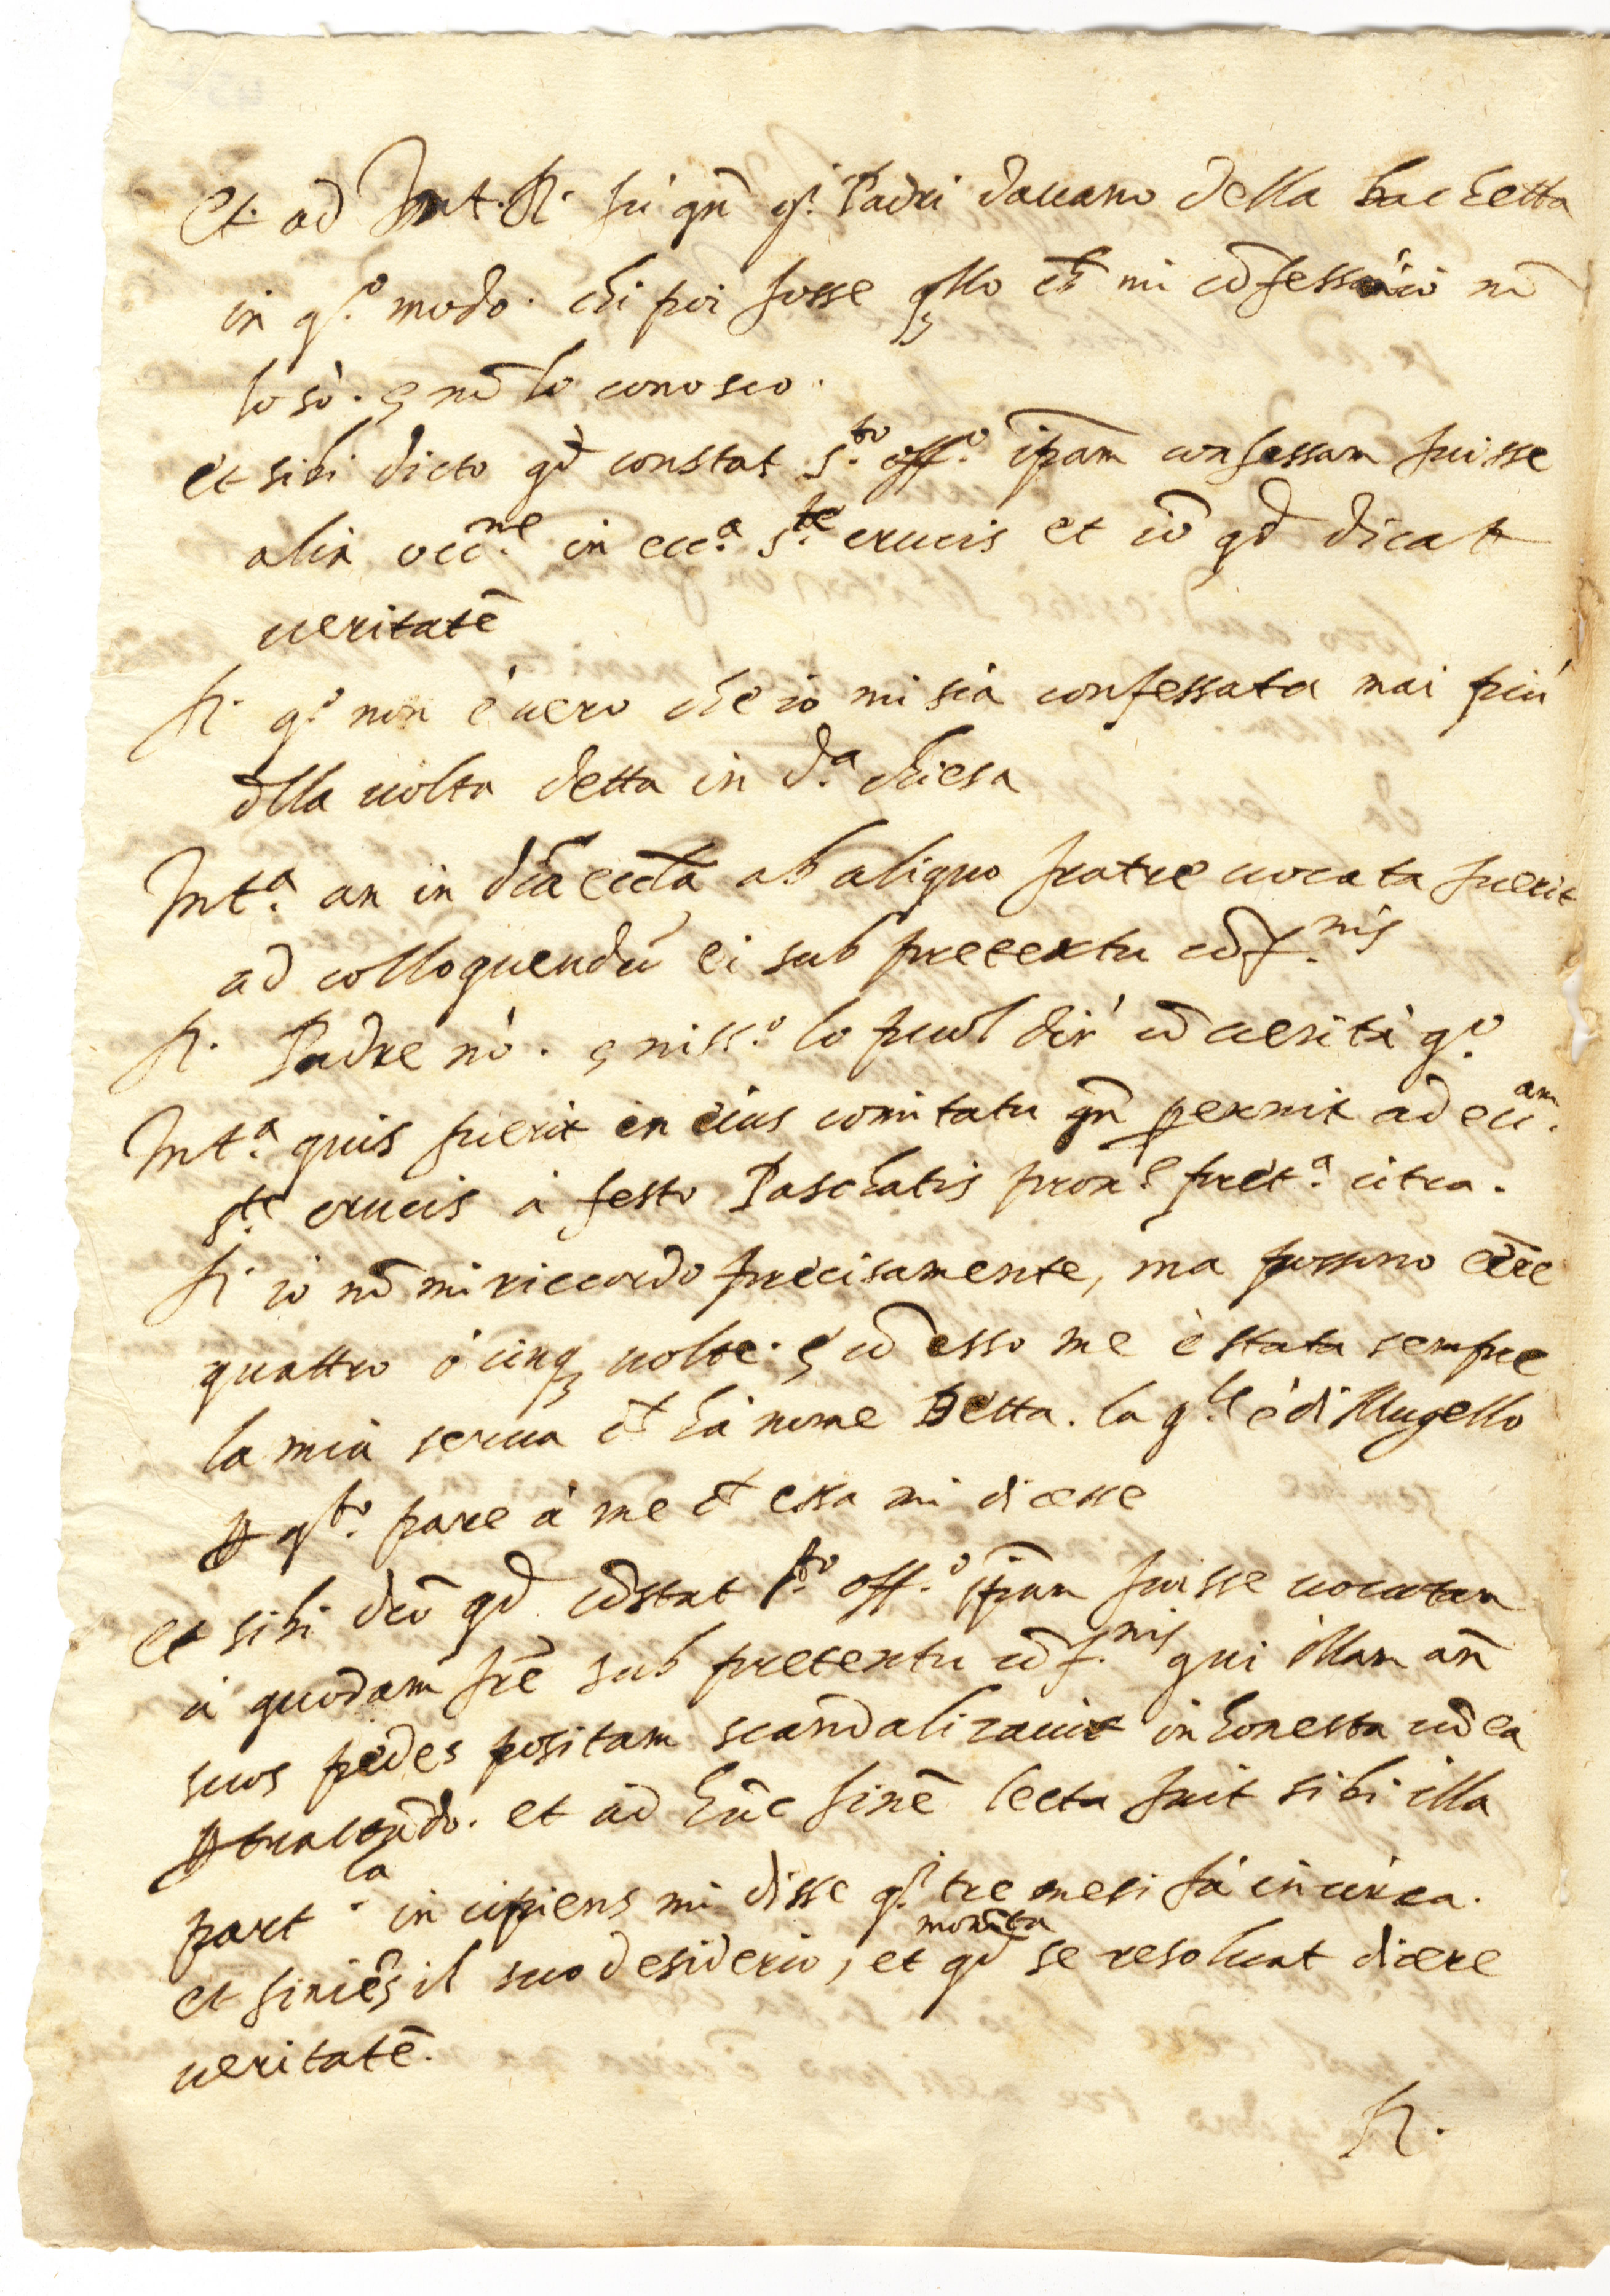 Et ad Int. R. fù qñ q.i Padri dauano della bachetta
in q.o modo. chi poi fosse qllo ch̃ mi cõfessò io nõ
lo sò. e nõ lo conosco.
et sibi dicto qd̃ constat S.to off.o ip̃am confessam fuisse
alia occ.ne in ecc.a S.te crucis et iõ qd̃ dicat
ueritatẽ
R. q.o non è uero che io mi sia confessata mai più
ðlla uolta detta in d.a chiesa
Int.a an in dc̃a eccl̃a ab aliquo fratre uocata fuerit
ad colloquendũ ei sub pretextu cõf.nis
R. Padre nò. e niss.o lo puol dir' cõ uerità q.o
Int.a quis fuerit in eius comitatu qñ peruenit ad ecc.am
S.te crucis à festo Paschatis prox.e pret.a citra.
R. io nõ mi riccordo precisamente, ma possono eẽre
quattro ò cinq; uolte. e cõ esso me è stata sempre
la mia serua ch̃ hà nome Betta. la q.le è di Mugello
p q.to pare à me ch̃ essa mi dicesse
et sibi dcõ qd̃ cõstat S.to off.o ip̃am fuisse uocatam
à quodam frẽ sub pretextu cõf.nis qui illam añ
suos pedes positam scandalizauit inhonesta cũ ea
ptractãdo. et ad hũc finẽ lecta fuit sibi illa
part.la incipiens mi disse q.i tre mesi fà in circa.
et finiẽs il suo desiderio, et qd̃ monita se resoluat dicere
ueritatẽ.
R.